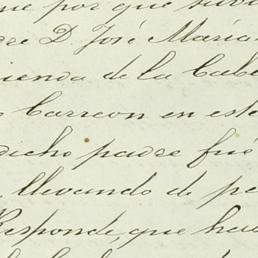 me por que
dre D. José María
ienda de la Cabe
Carreon en este
dicho padre fué
llevando de pe
Responde, que ha